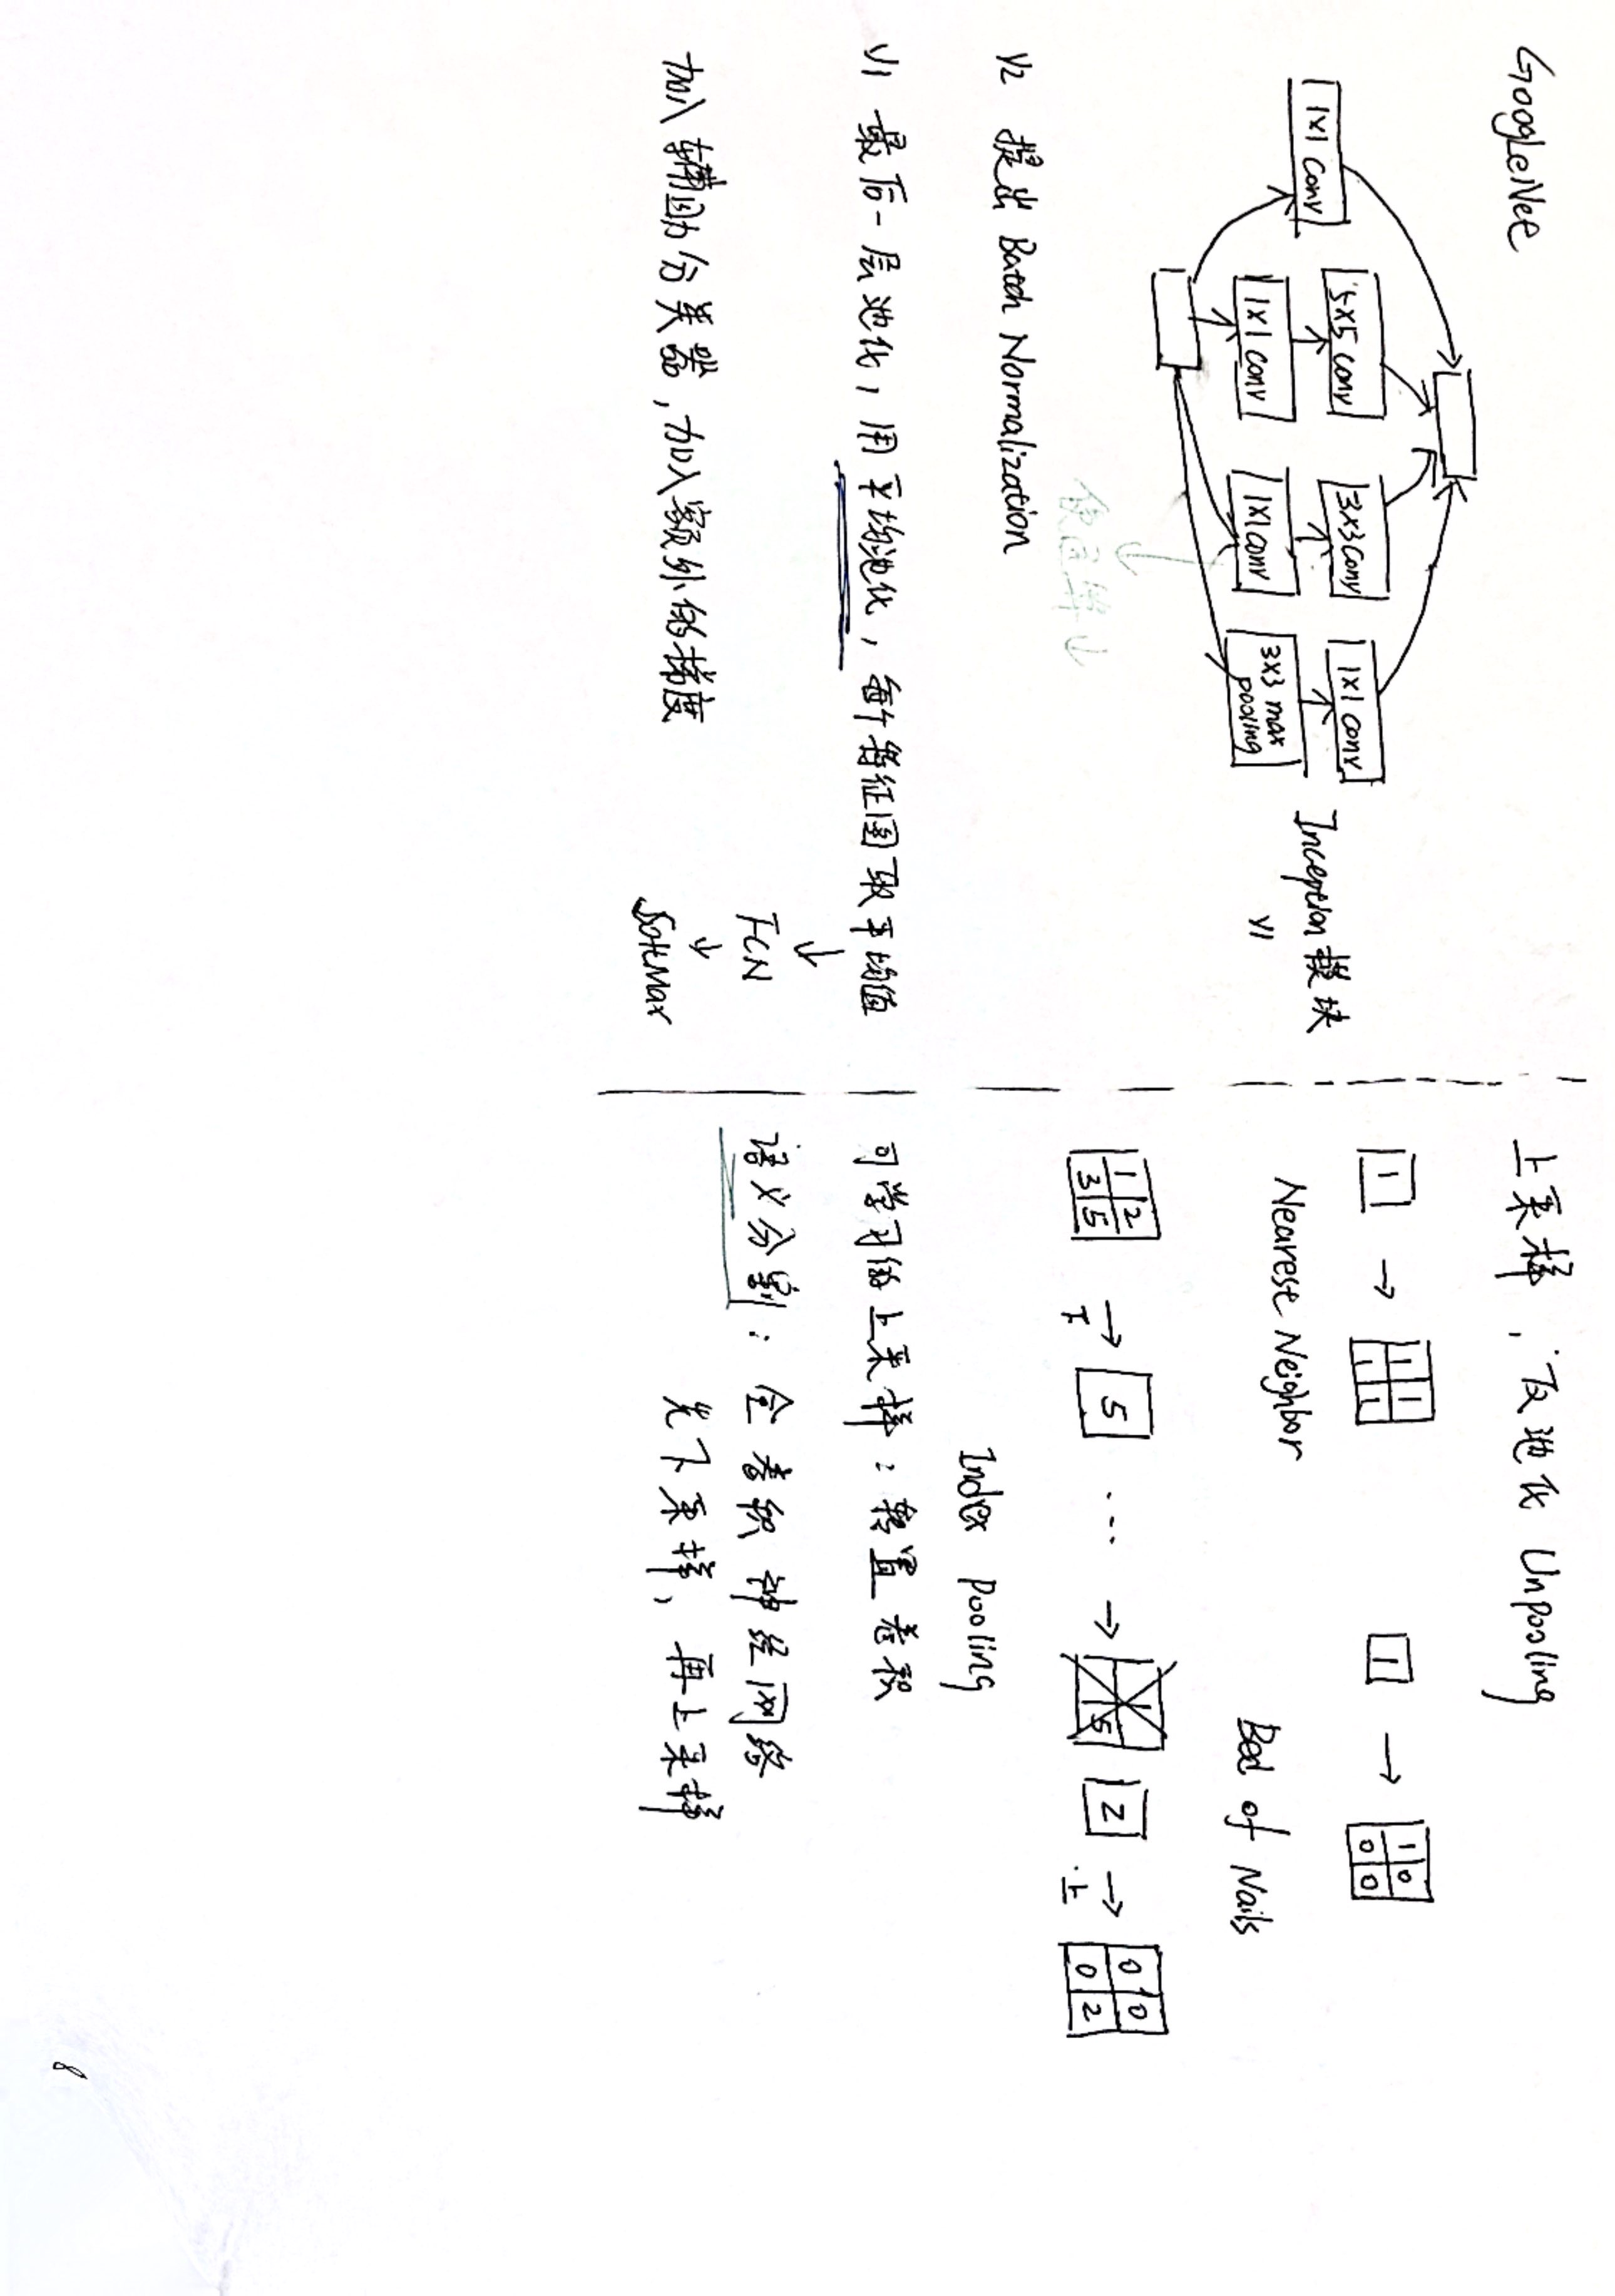 GoogLeNet
1x1 conv
5x5 conv
3x3 conv
1x1 conv
1x1 conv
1x1 conv
3x3 max
pooling
Inception 模块
V1
使运算↓
V2 提出 Batch Normalization
V1 最后一层池化,用平均池化,每个特征图取平均值
↓
FCN
↓
SoftMax
加入辅助分类器,加入额外的梯度
上采样,反池化 Unpooling
1 → 1 1
1 1
Nearest Neighbor
1 → 1 0
0 0
Bed of Nails
1 2
3 5
→
下
5 ... →
1
5
2 →
上
0 0
0 2
Index Pooling
可学习的上采样:转置卷积
语义分割:全卷积神经网络
先下采样,再上采样
8